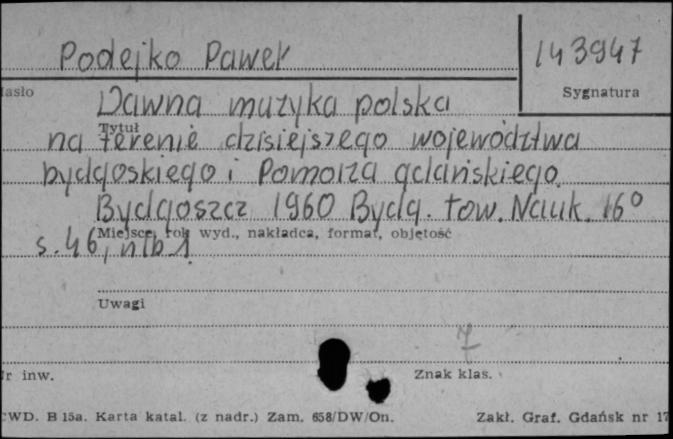 Podejko Paweł
143947
asło
Sygnatura
Dawna muzyka polska
Tytuł
na terenie dzisiejszego województwa
bydgoskiego i Pomorza gdańskiego.
Bydgoszcz 1960 Bydg. tow. Nauk. 16°
Miejsce, rok wyd., nakładca, format, objętość
s. 46, nlb 1
Uwagi
7
r inw.
Znak klas.
CWD. B 15a. Karta katal. (z nadr.) Zam. 658/DW/On.
Zakł. Graf. Gdańsk nr 17